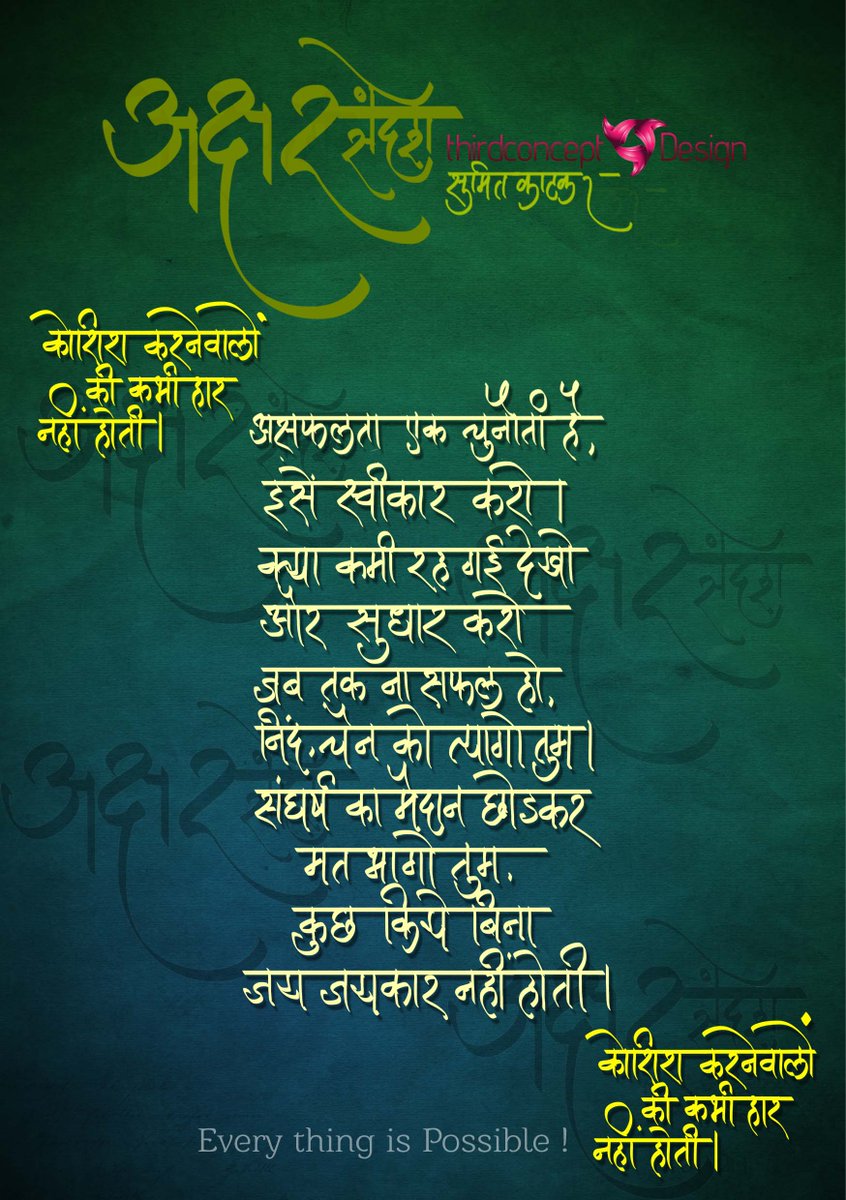 अक्षर संदेश
thirdconcept Design
सुमित काटकर
कोशिश करनेवालों
की कभी हार
नहीं होती।
असफलता एक चुनौती है,
इसे स्वीकार करो।
क्या कमी रह गई देखो
और सुधार करो
जब तक ना सफल हो,
निंद, चैन को त्यागो तुम।
संघर्ष का मैदान छोडकर
मत भागो तुम,
कुछ किये बिना
जय जयकार नहीं होती।
कोशिश करनेवालों
की कभी हार
नहीं होती।
Every thing is Possible !